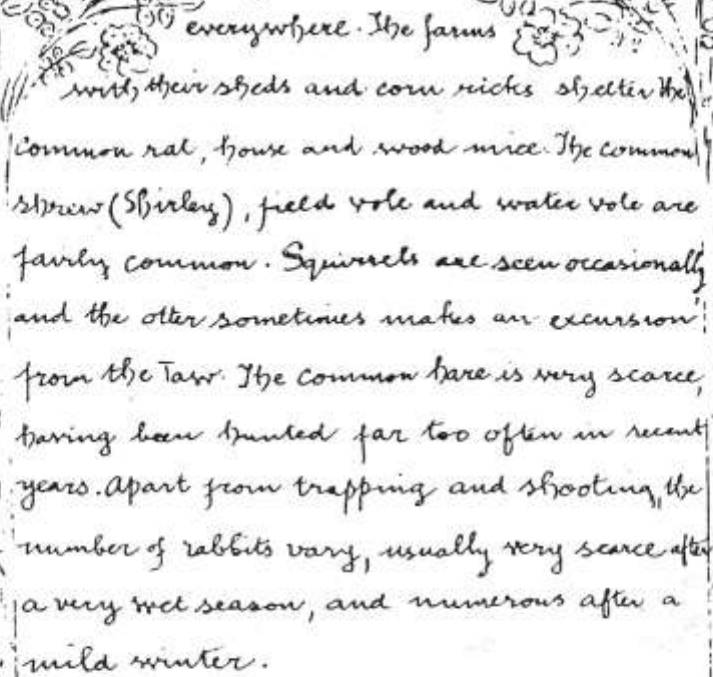 everywhere. The farms
with their sheds and corn ricks shelter the
common rat, house and wood mice. The common
shrew (Shirley), field vole and water vole are
fairly common. Squirrels are seen occasionally
and the otter sometimes makes an excursion
from the Taw. The common hare is very scarce,
having been hunted far too often in recent
years. Apart from trapping and shooting, the
number of rabbits vary, usually very scarce after
a very wet season, and numerous after a
mild winter.